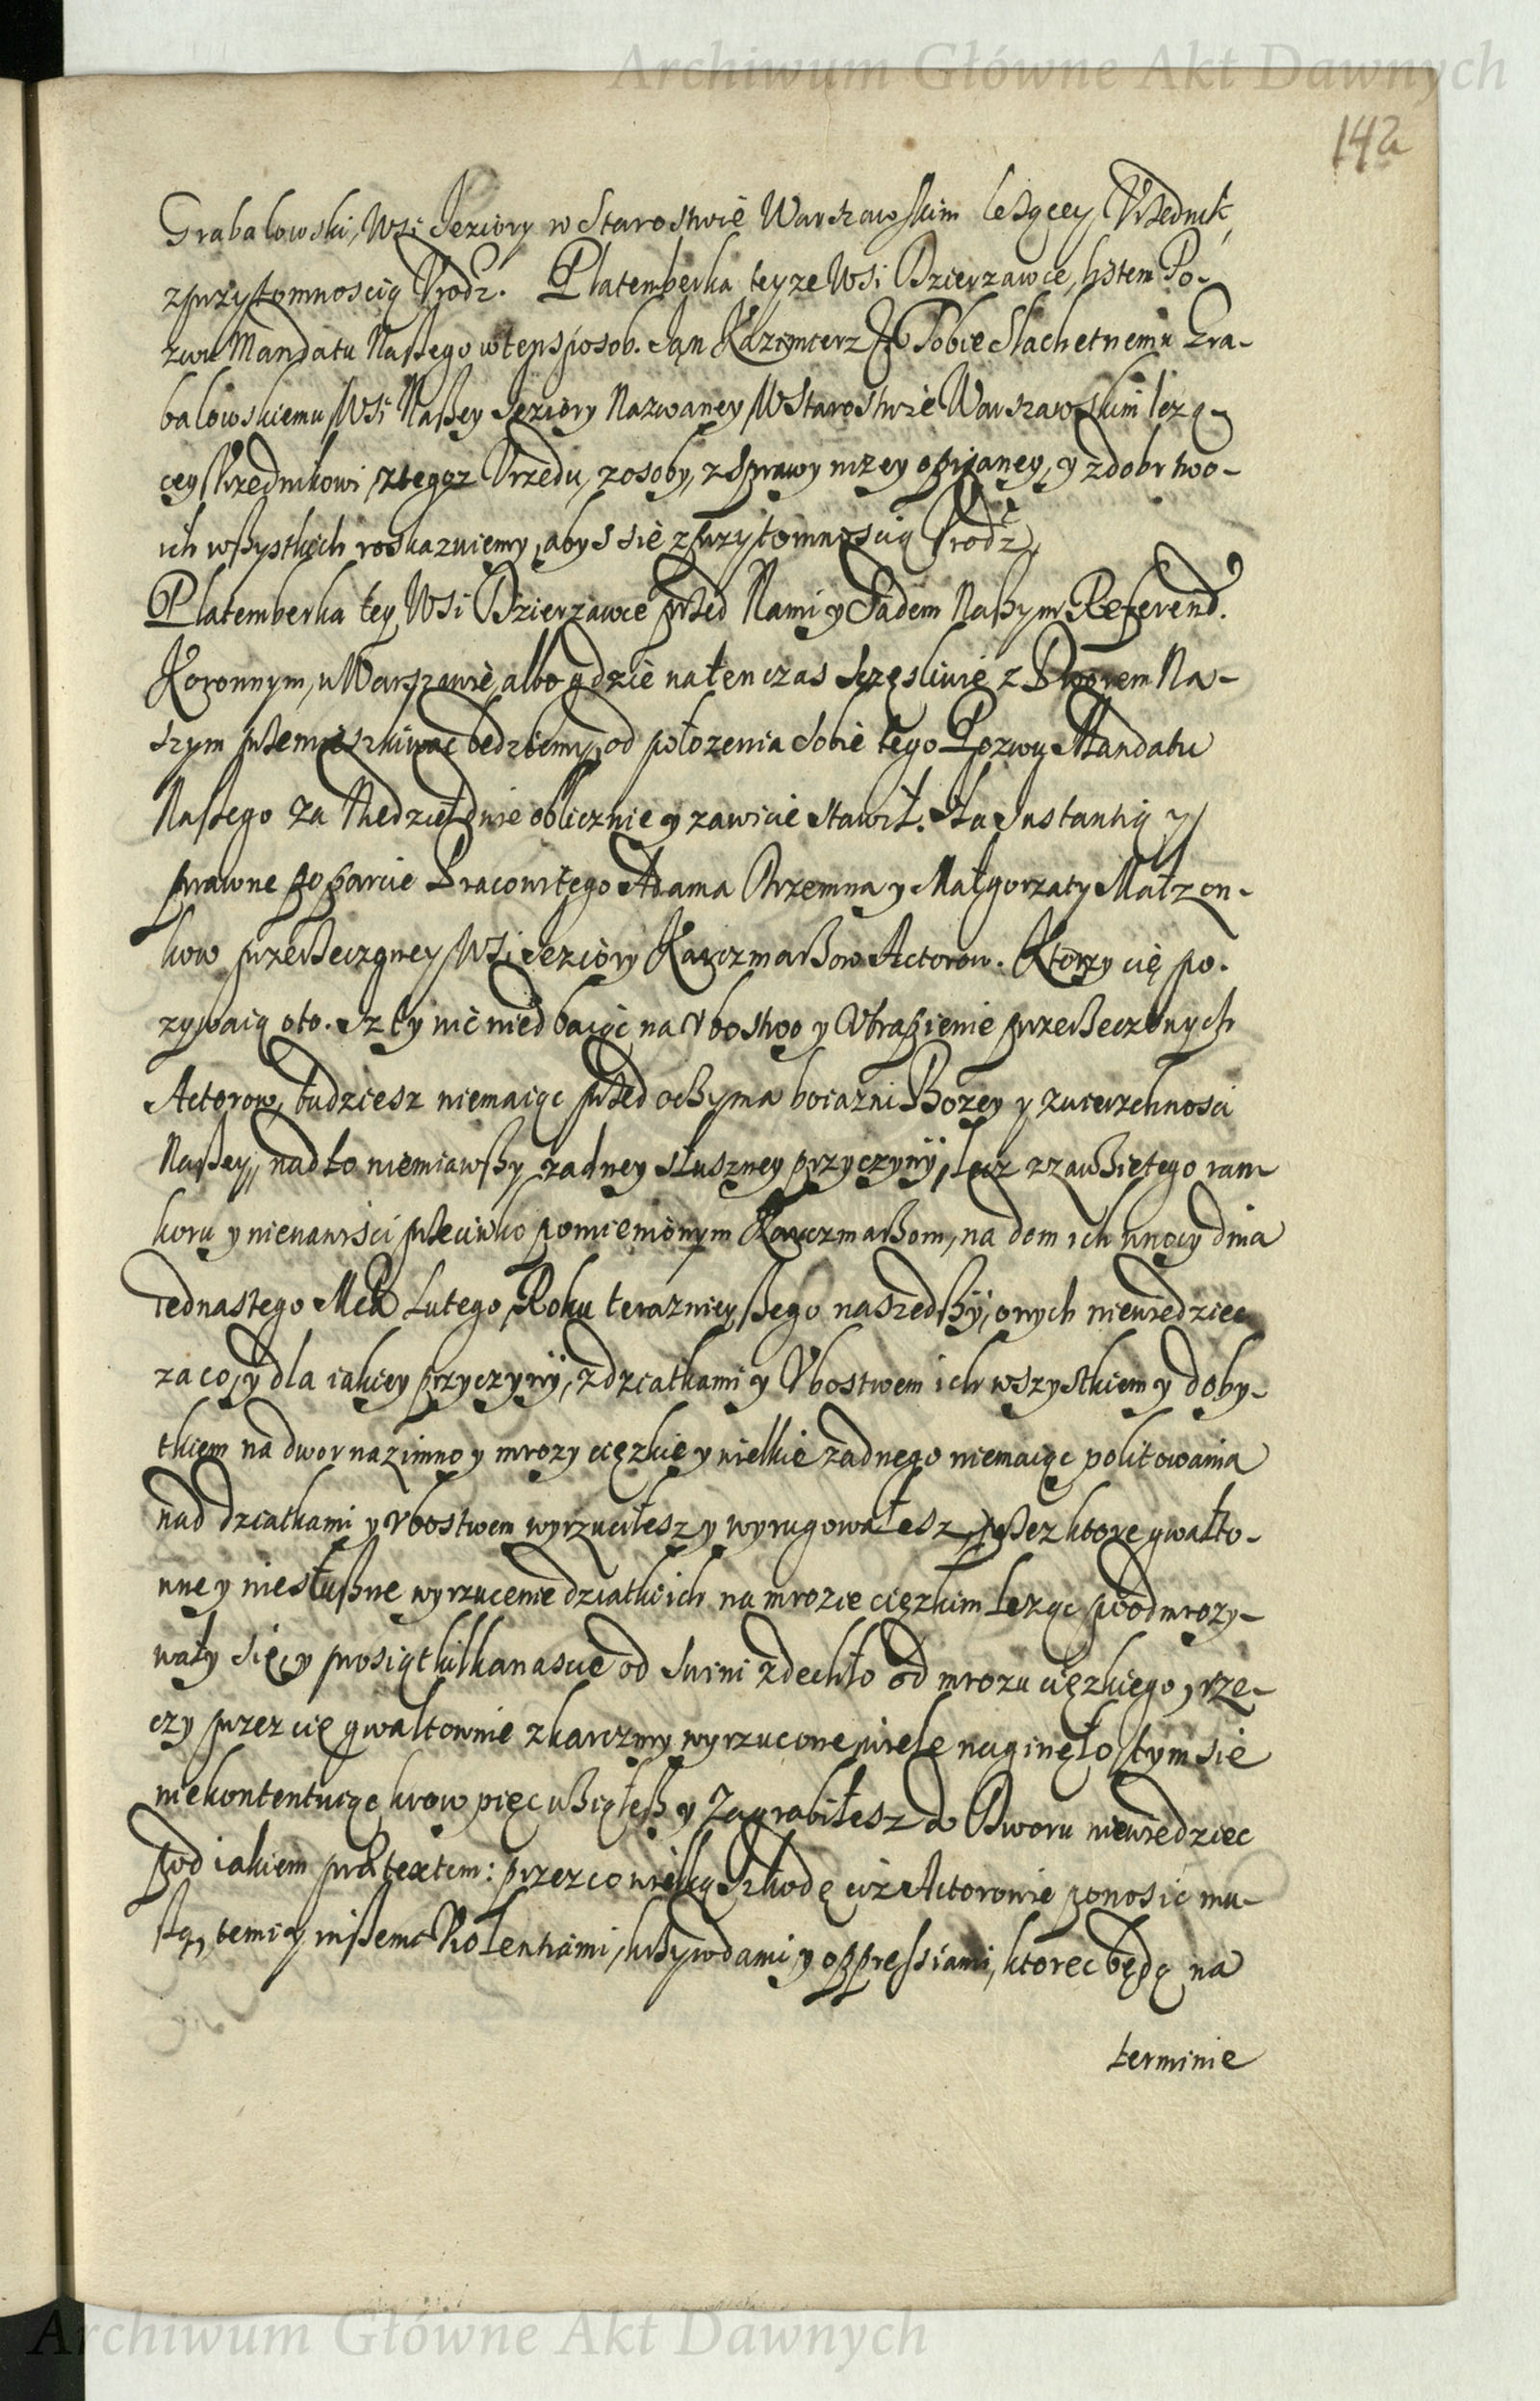 Archiwum Główne Akt Dawnych
142
Grabałowski, Wsi Jeziory w Starostwie Warszawskim leżącey Vrżednik,
z przytomnoscią Vrodz. Platemberka teyze Wsi Dzierzawce, listem Po-
zwu Mandatu Naszego w ten sposob. Jan Kazimierz etc. Tobie Slachetnemu Gra-
bałowskiemu Wsi Naszey Jeziory Nazwaney W Starostwie Warszawskim lezą-
cey Vrzednikowi, z tegoz Vrzedu, z osoby, z sprawy nizey opisaney, y z dobr two-
ich wszystkich roskazuiemy, abys sie z przytomnoscią Vrodz.
Platemberka tey Wsi Dzierzawce przed Nami y Sadem Naszym Referend.
Koronnym, w Warszawie, albo gdzie na ten czas sczęsliwie z Dworem Na-
szym przemieszkiwac bedziemy, od położenia sobie tego Pozwu Mandatu
Naszego za Niedziel dwie oblicznie y zawicie stawił. Na Instantią y
prawne poparcie Pracowitego Adama Krzemna y Małgorzaty Małzon-
kow przerzeczoney Wsi Jeziory Karczmarzow Actorow. Ktorzy cię po-
zywaią oto. Iz ty nic niedbaiąc na Vbostwo y Vtrapienie przerzeczonych
Actorow, tudziesz niemaiąc przed oczyma boiazni Bozey y zwierzchnosci
Naszey, nad to niemiawszy zadney słuszney przyczyny, lecz z zawziętego ran-
koru y nienawisci przeciwko pomienionym Karczmarzom, na dom ich w nocy dnia
iednastego Mca Lutego, Roku teraznieyszego naszedszy, onych niewiedziec
za co, y dla iakiey przyczyny, z dziatkami y Vbostwem ich wszystkiem y doby-
tkiem na dwor na zimno y mrozy cięzkie y wielkie zadnego niemaiąc politowania
nad dziatkami y vbostwem wyrzuciłesz y wyrugowałesz, przez ktore gwałto-
wne y niesłuszne wyrzucenie dziatki ich na mrozie cięzkim leząc podmrozy-
wały się, y prosiąt kilkanascie od swini zdechło od mrozu cięzkiego, y rze-
czy przez cię gwaltownie z karczmy wyrzucone wiele naginęło, tym sie
niekontentuiąc, krow pięc wziąłesz y zagrabiłesz do Dworu niewiedziec
pod iakiem praetextem: przez co wielką szkodę ciż Actorowie ponosić mu-
szą, temi y inszemi Violentiami, krzywdami y oppressiami, ktorec będą na
terminie
Archiwum Główne Akt Dawnych